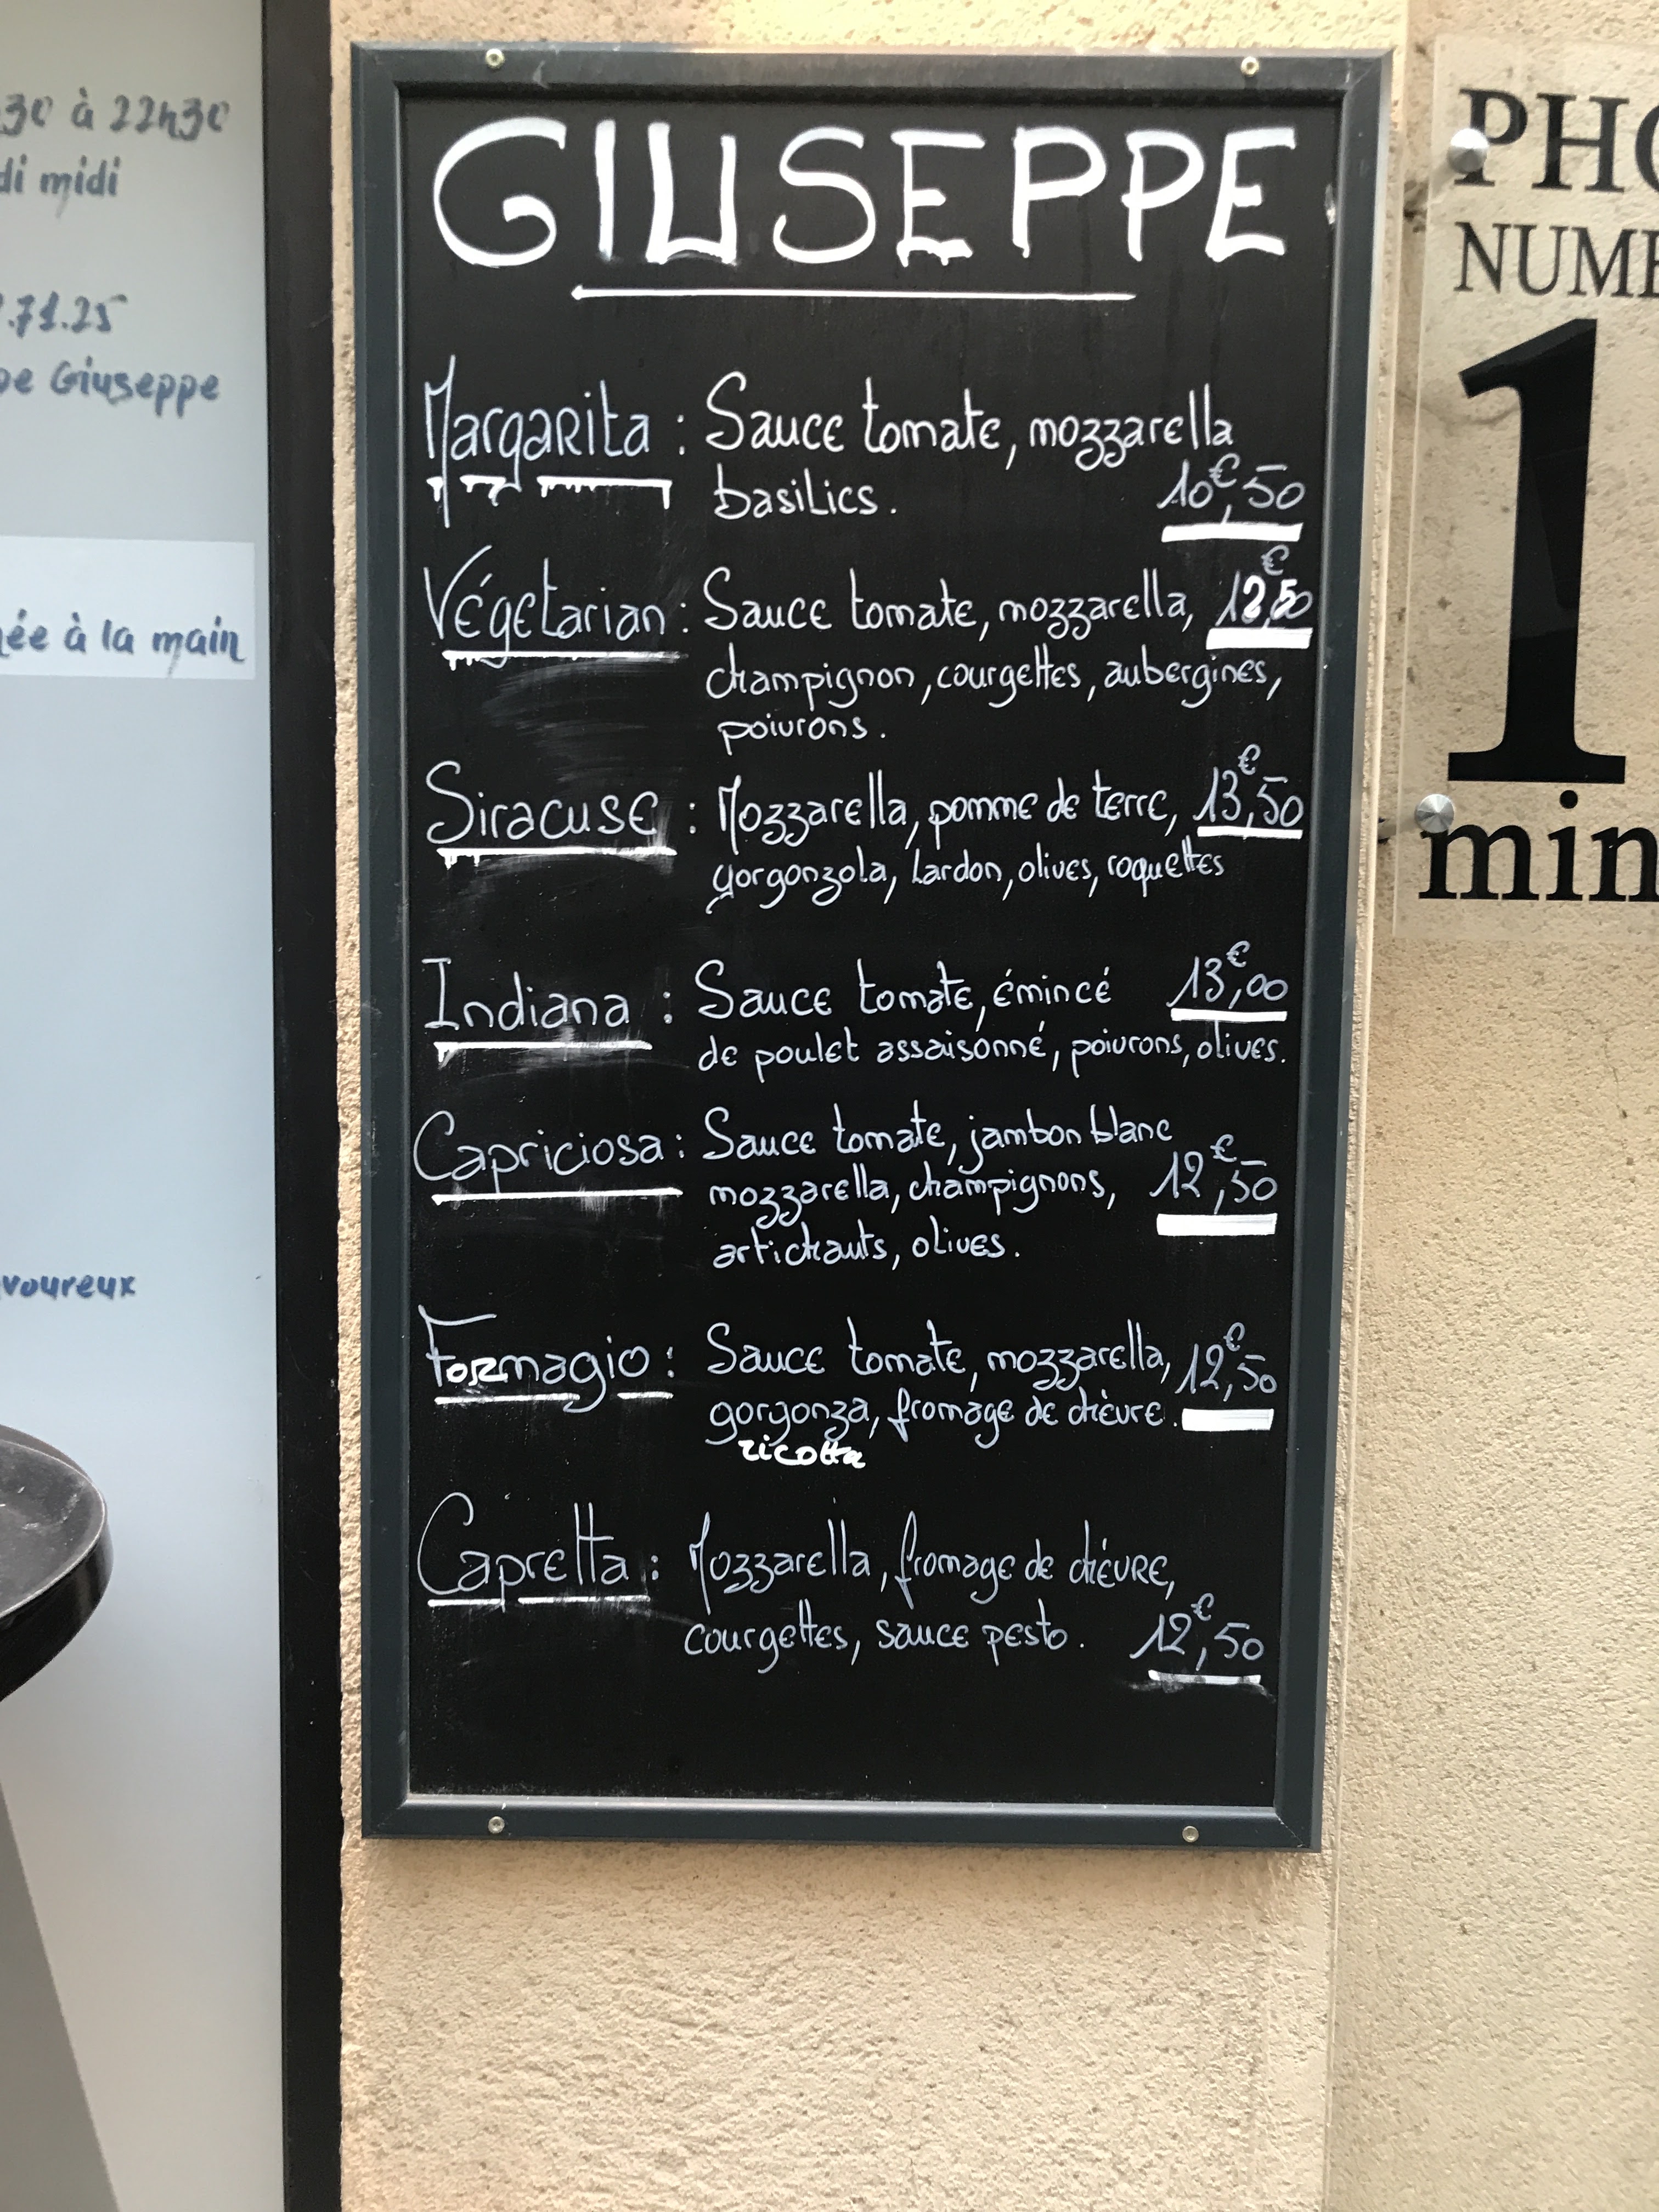 30 à 22h30
di midi
.71.25
pe Giuseppe
née à la main
voureux
GIUSEPPE
Margarita : Sauce tomate, mozzarella
basilics. 10€,50
Végetarian : Sauce tomate, mozzarella, 12€,50
champignon, courgettes, aubergines,
poivrons.
Siracuse : Mozzarella, pomme de terre, 13€,50
gorgonzola, lardon, olives, roquettes
Indiana : Sauce tomate, émincé 13€,00
de poulet assaisonné, poivrons, olives.
Capriciosa : Sauce tomate, jambon blanc
mozzarella, champignons, 12€,50
artichauts, olives.
Formagio : Sauce tomate, mozzarella, 12€,50
gorgonza, fromage de chèvre.
ricotta
Capretta : Mozzarella, fromage de chèvre,
courgettes, sauce pesto. 12€,50
PHO
NUME
1
min